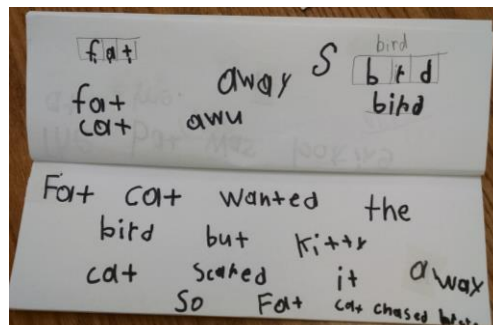 bird
fat away S b r d
fat bird
cat awu
Fat cat wanted the
bird but kitty
cat scared it away
So Fat cat chased